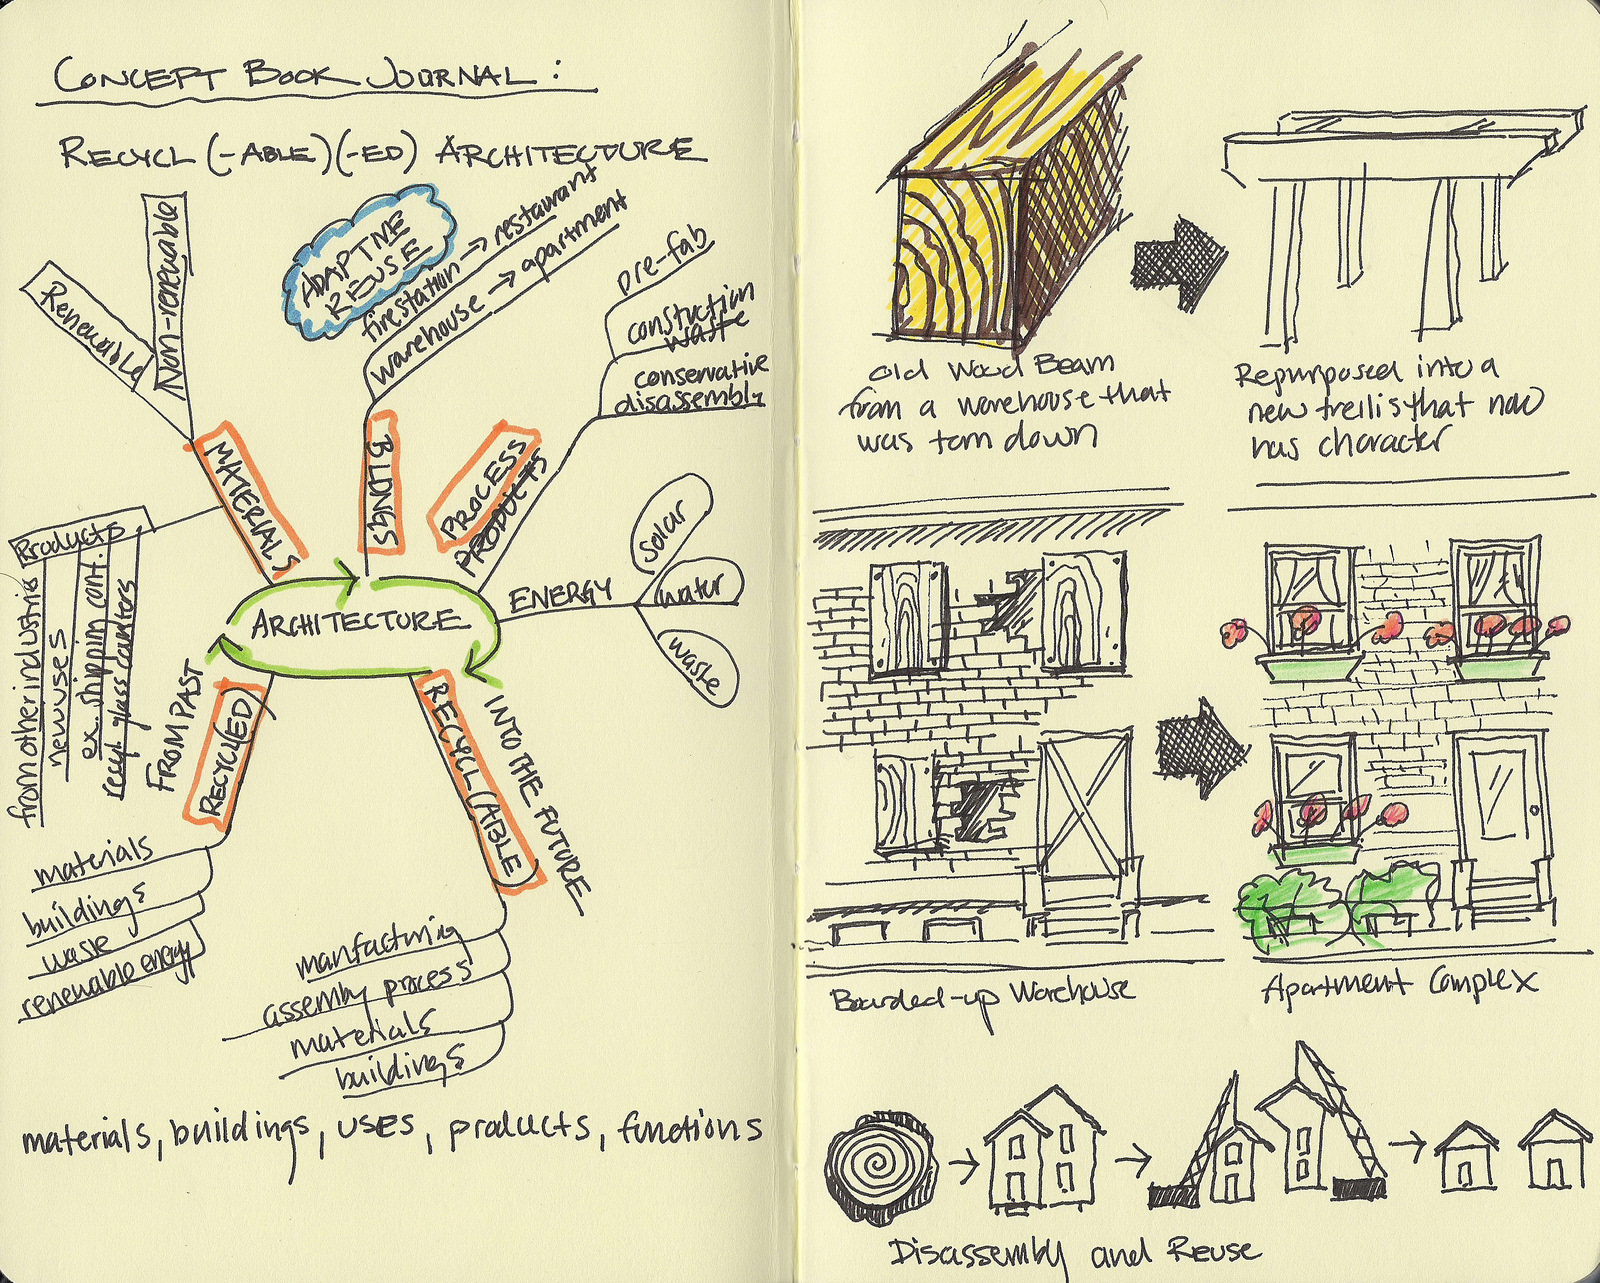 CONCEPT BOOK JOURNAL:
RECYCL(-ABLE)(-ED) ARCHITECTURE
Renewable
Non-renewable
ADAPTIVE
REUSE
firestation → restaurant
warehouse → apartment
pre-fab
constuction
waste
conservative
disassembly
MATERIALS
BLDNGS
PROCESS
PRODUCTS
Products
from other industries
new uses
ex. shipping cont.
recyl glass counters
ARCHITECTURE
ENERGY
Solar
water
waste
FROM PAST
RECYCLED
RECYCL(ABLE)
INTO THE FUTURE
materials
buildings
waste
renewable energy
manfacturing
assembly process
materials
buildings
materials, buildings, uses, products, functions
Old Wood Beam
from a warehouse that
was torn down
Repurposed into a
new trellis that now
has character
Boarded-up Warehouse
Apartment Complex
Disassembly and Reuse